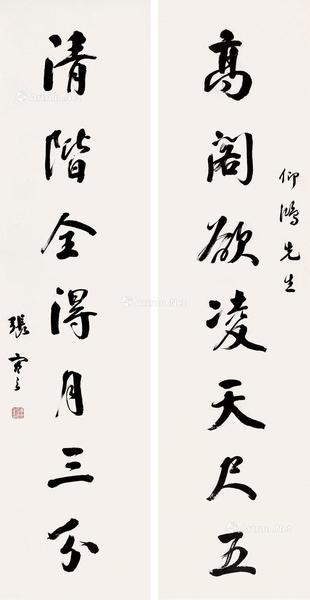 仰鴻先生
高閣欲凌天尺五
清階全得月三分
張
Artron.Net